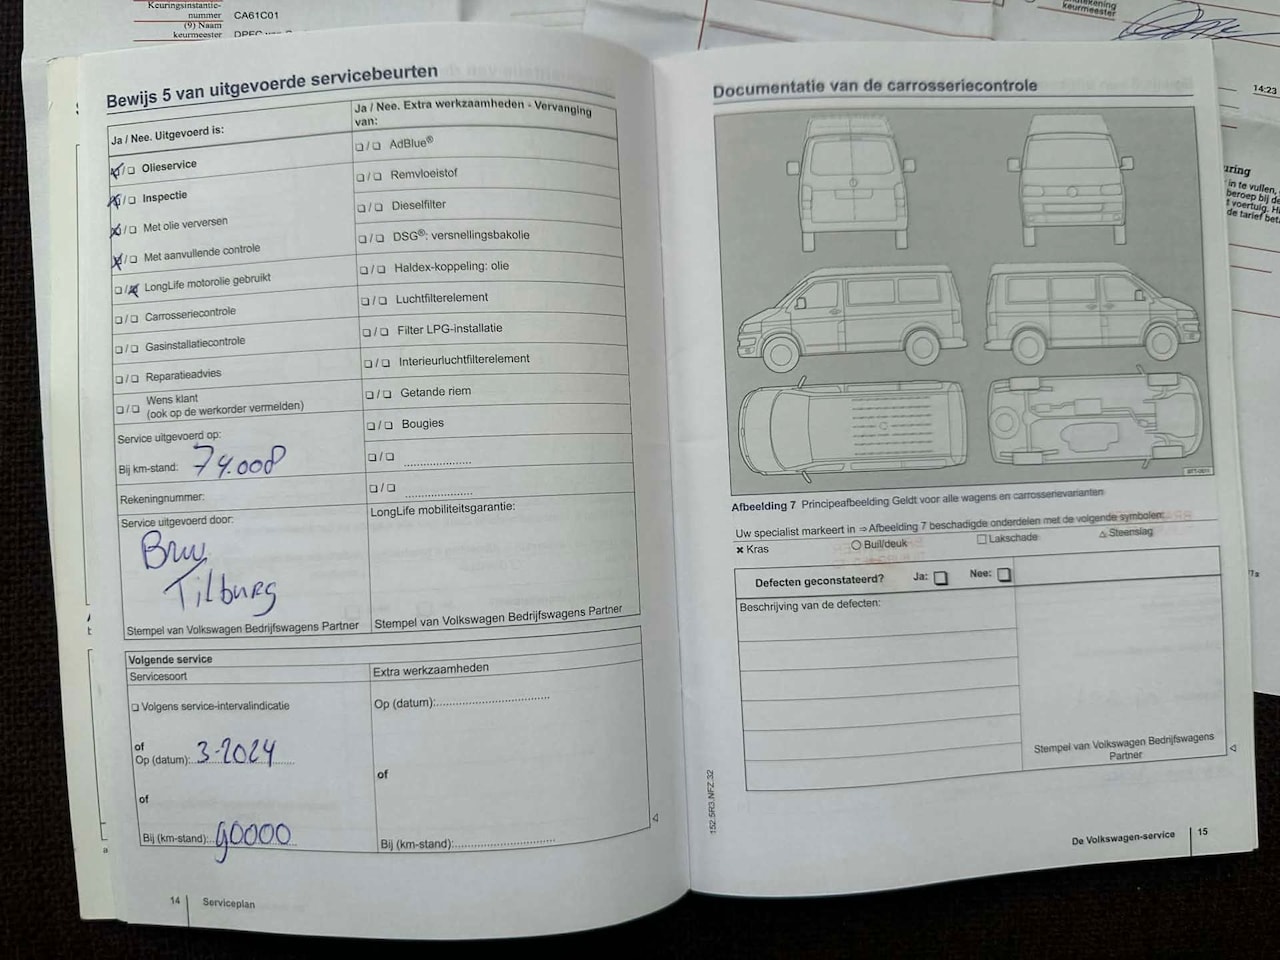 Keuringsinstantie-
nummer CA61C01
(9) Naam
keurmeester
keurmeester
14:23
Bewijs 5 van uitgevoerde servicebeurten
Ja / Nee. Uitgevoerd is:
☒/☐ Olieservice
☒/☐ Inspectie
☒/☐ Met olie verversen
☒/☐ Met aanvullende controle
☐/☒ LongLife motorolie gebruikt
☐/☐ Carrosseriecontrole
☐/☐ Gasinstallatiecontrole
☐/☐ Reparatieadvies
☐/☐ Wens klant
(ook op de werkorder vermelden)
Service uitgevoerd op:
Bij km-stand: 74.008
Rekeningnummer:
Service uitgevoerd door:
Tilburg
Stempel van Volkswagen Bedrijfswagens Partner
Ja / Nee. Extra werkzaamheden - Vervanging
van:
☐/☐ AdBlue®
☐/☐ Remvloeistof
☐/☐ Dieselfilter
☐/☐ DSG®: versnellingsbakolie
☐/☐ Haldex-koppeling: olie
☐/☐ Luchtfilterelement
☐/☐ Filter LPG-installatie
☐/☐ Interieurluchtfilterelement
☐/☐ Getande riem
☐/☐ Bougies
☐/☐ ....................
☐/☐ ....................
LongLife mobiliteitsgarantie:
Stempel van Volkswagen Bedrijfswagens Partner
Volgende service
Servicesoort
☐ Volgens service-intervalindicatie
of
Op (datum): 3-2024
of
Bij (km-stand): 90000
Extra werkzaamheden
Op (datum):..............................
of
Bij (km-stand):..........................
14 Serviceplan
Documentatie van de carrosseriecontrole
Afbeelding 7 Principeafbeelding Geldt voor alle wagens en carrosserievarianten
Uw specialist markeert in ⇒ Afbeelding 7 beschadigde onderdelen met de volgende symbolen:
✖ Kras ○ Buil/deuk □ Lakschade △ Steenslag
Defecten geconstateerd? Ja: ☐ Nee: ☐
Beschrijving van de defecten:
Stempel van Volkswagen Bedrijfswagens
Partner
152.5R3.NFZ.32
De Volkswagen-service 15
uring
in te vullen,
beroep bij de
voertuig.
de tarief